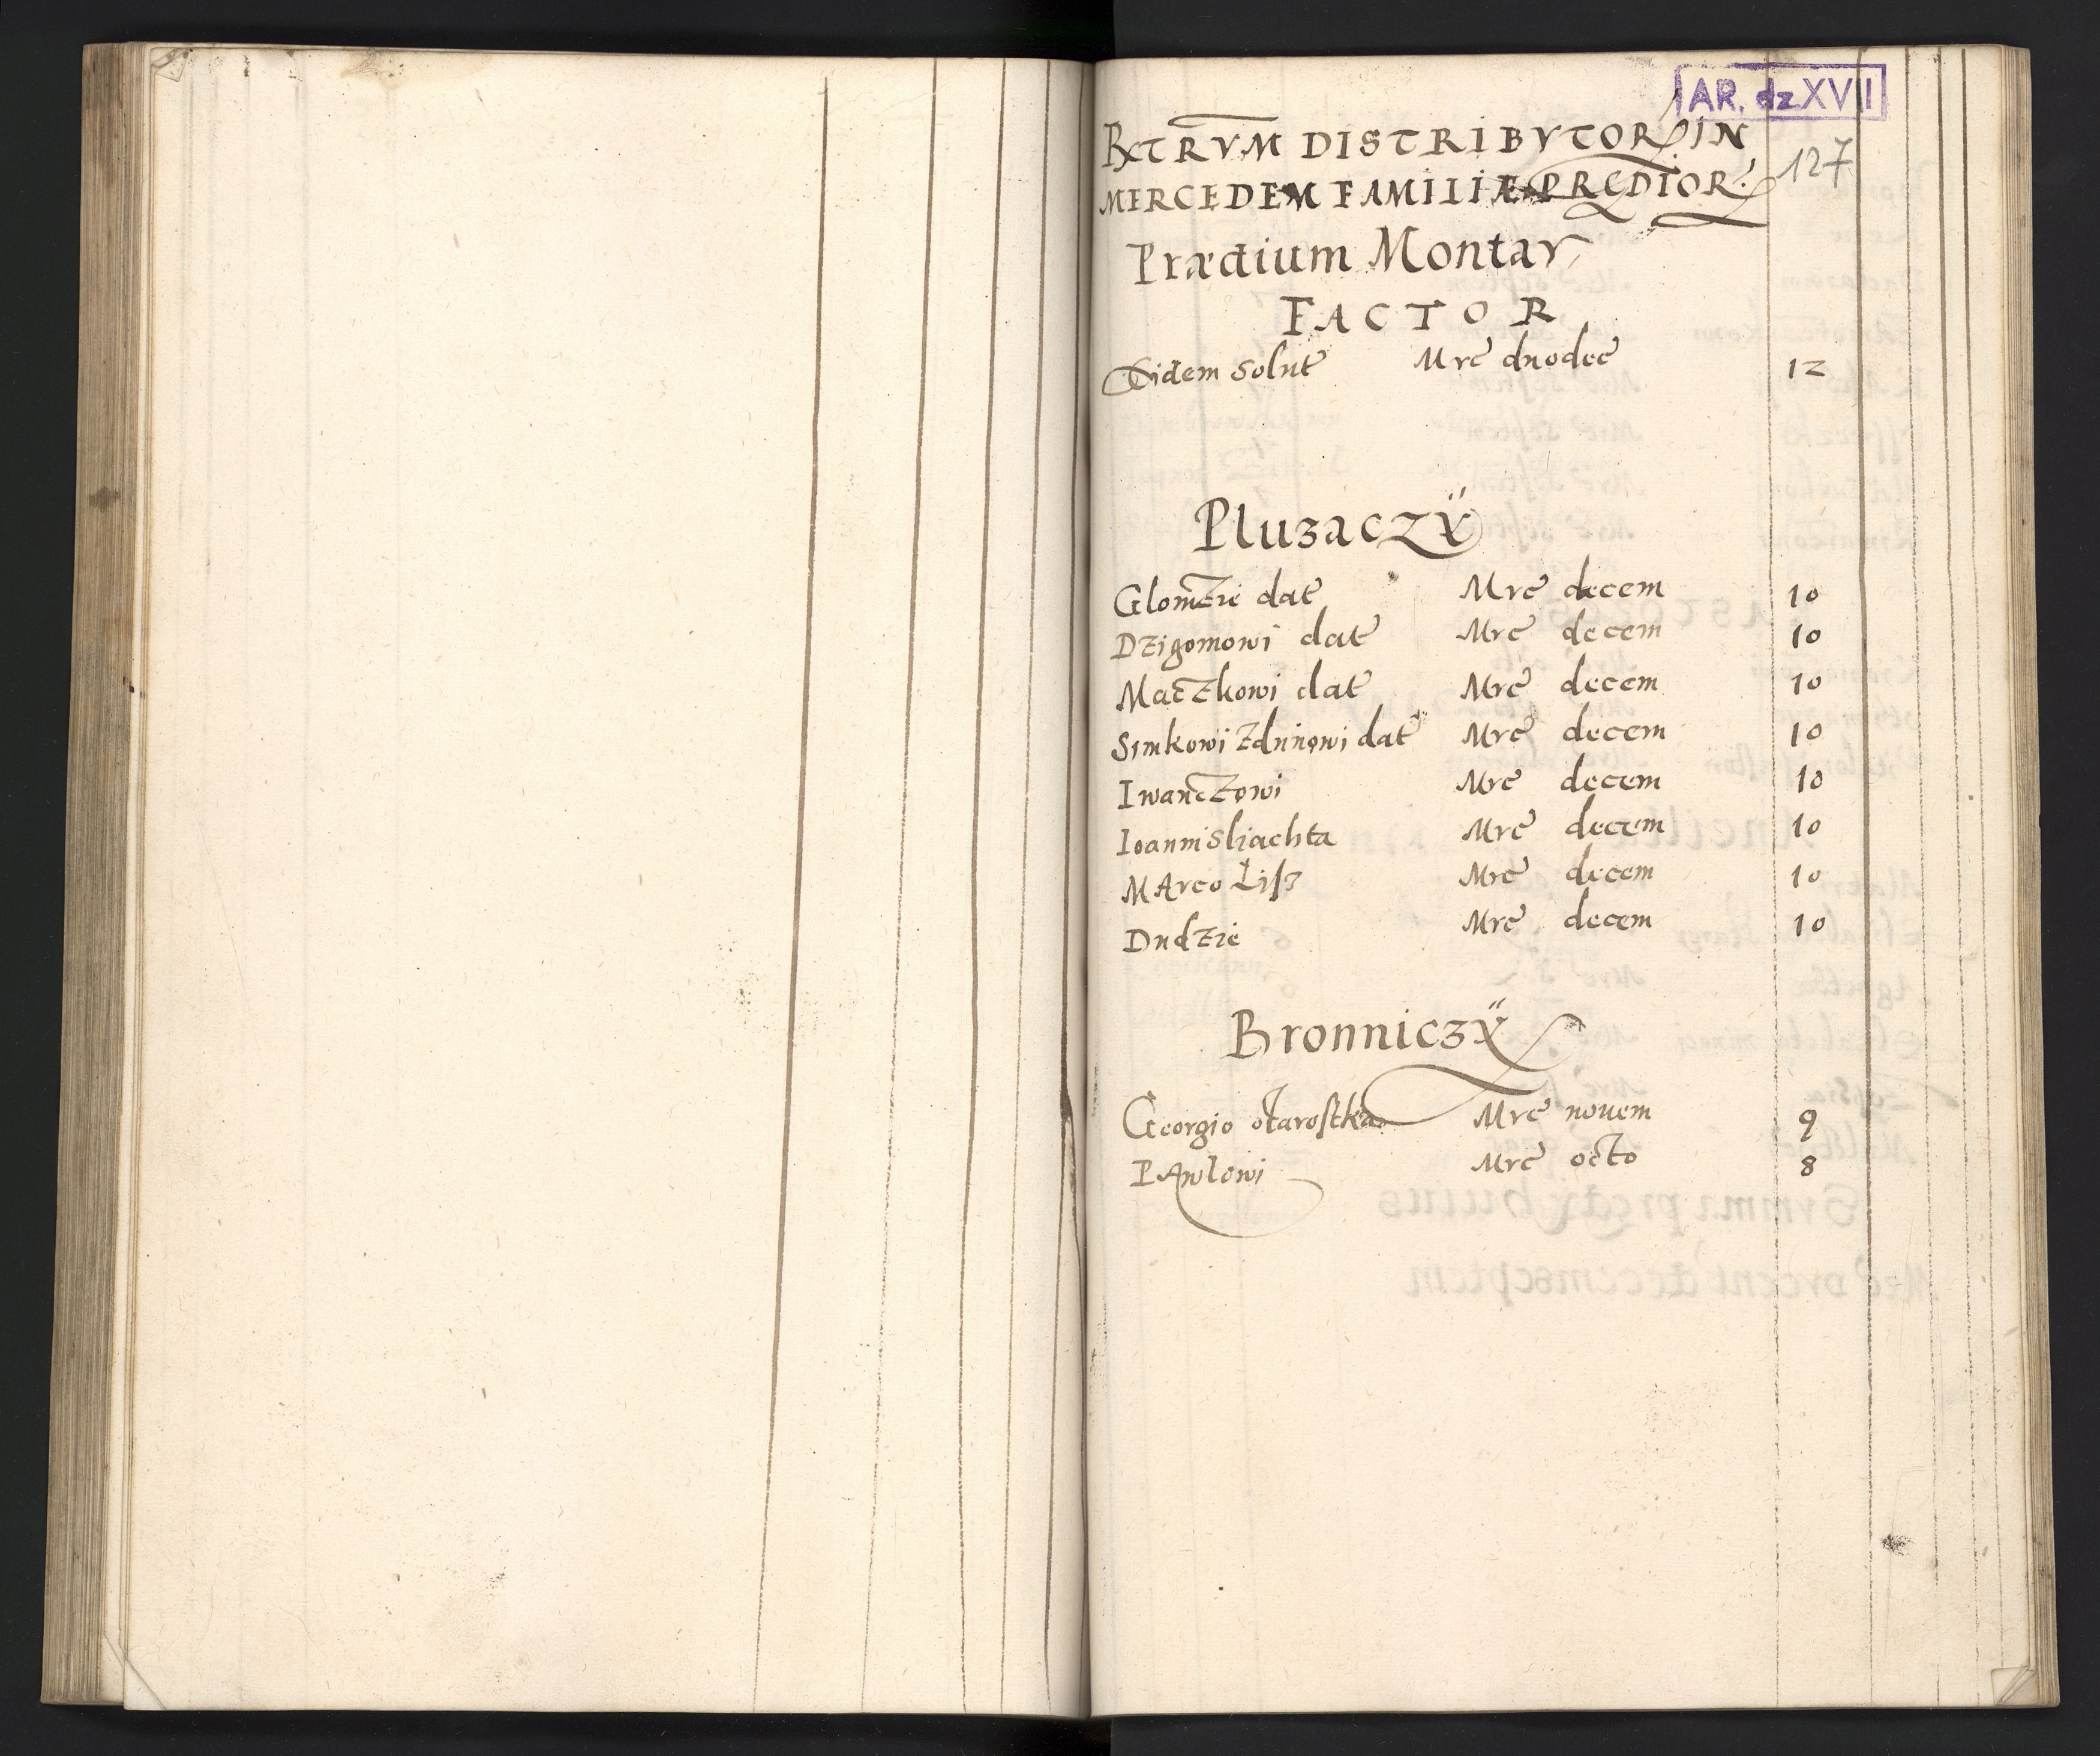 AR. dz XVII
RXTRVM DISTRIBVTOR IN
127
MERCEDEM FAMILIÆ PRÆDIOR:
Prædium Montav
FACTOR
Eidem solut Mrc duodec 12
Pluzaczÿ
Glomzie dat Mrc decem 10
Dzigomowi dat Mrc decem 10
Maczkowi dat Mrc decem 10
Simkowi Zdunowi dat Mrc decem 10
Iwanczowi Mrc decem 10
Ioanni Sliachta Mrc decem 10
MArco Lisz Mrc decem 10
Dudzie Mrc decem 10
Bronniczÿ
Georgio Starostka Mrc nouem 9
PAwlowi Mrc octo 8